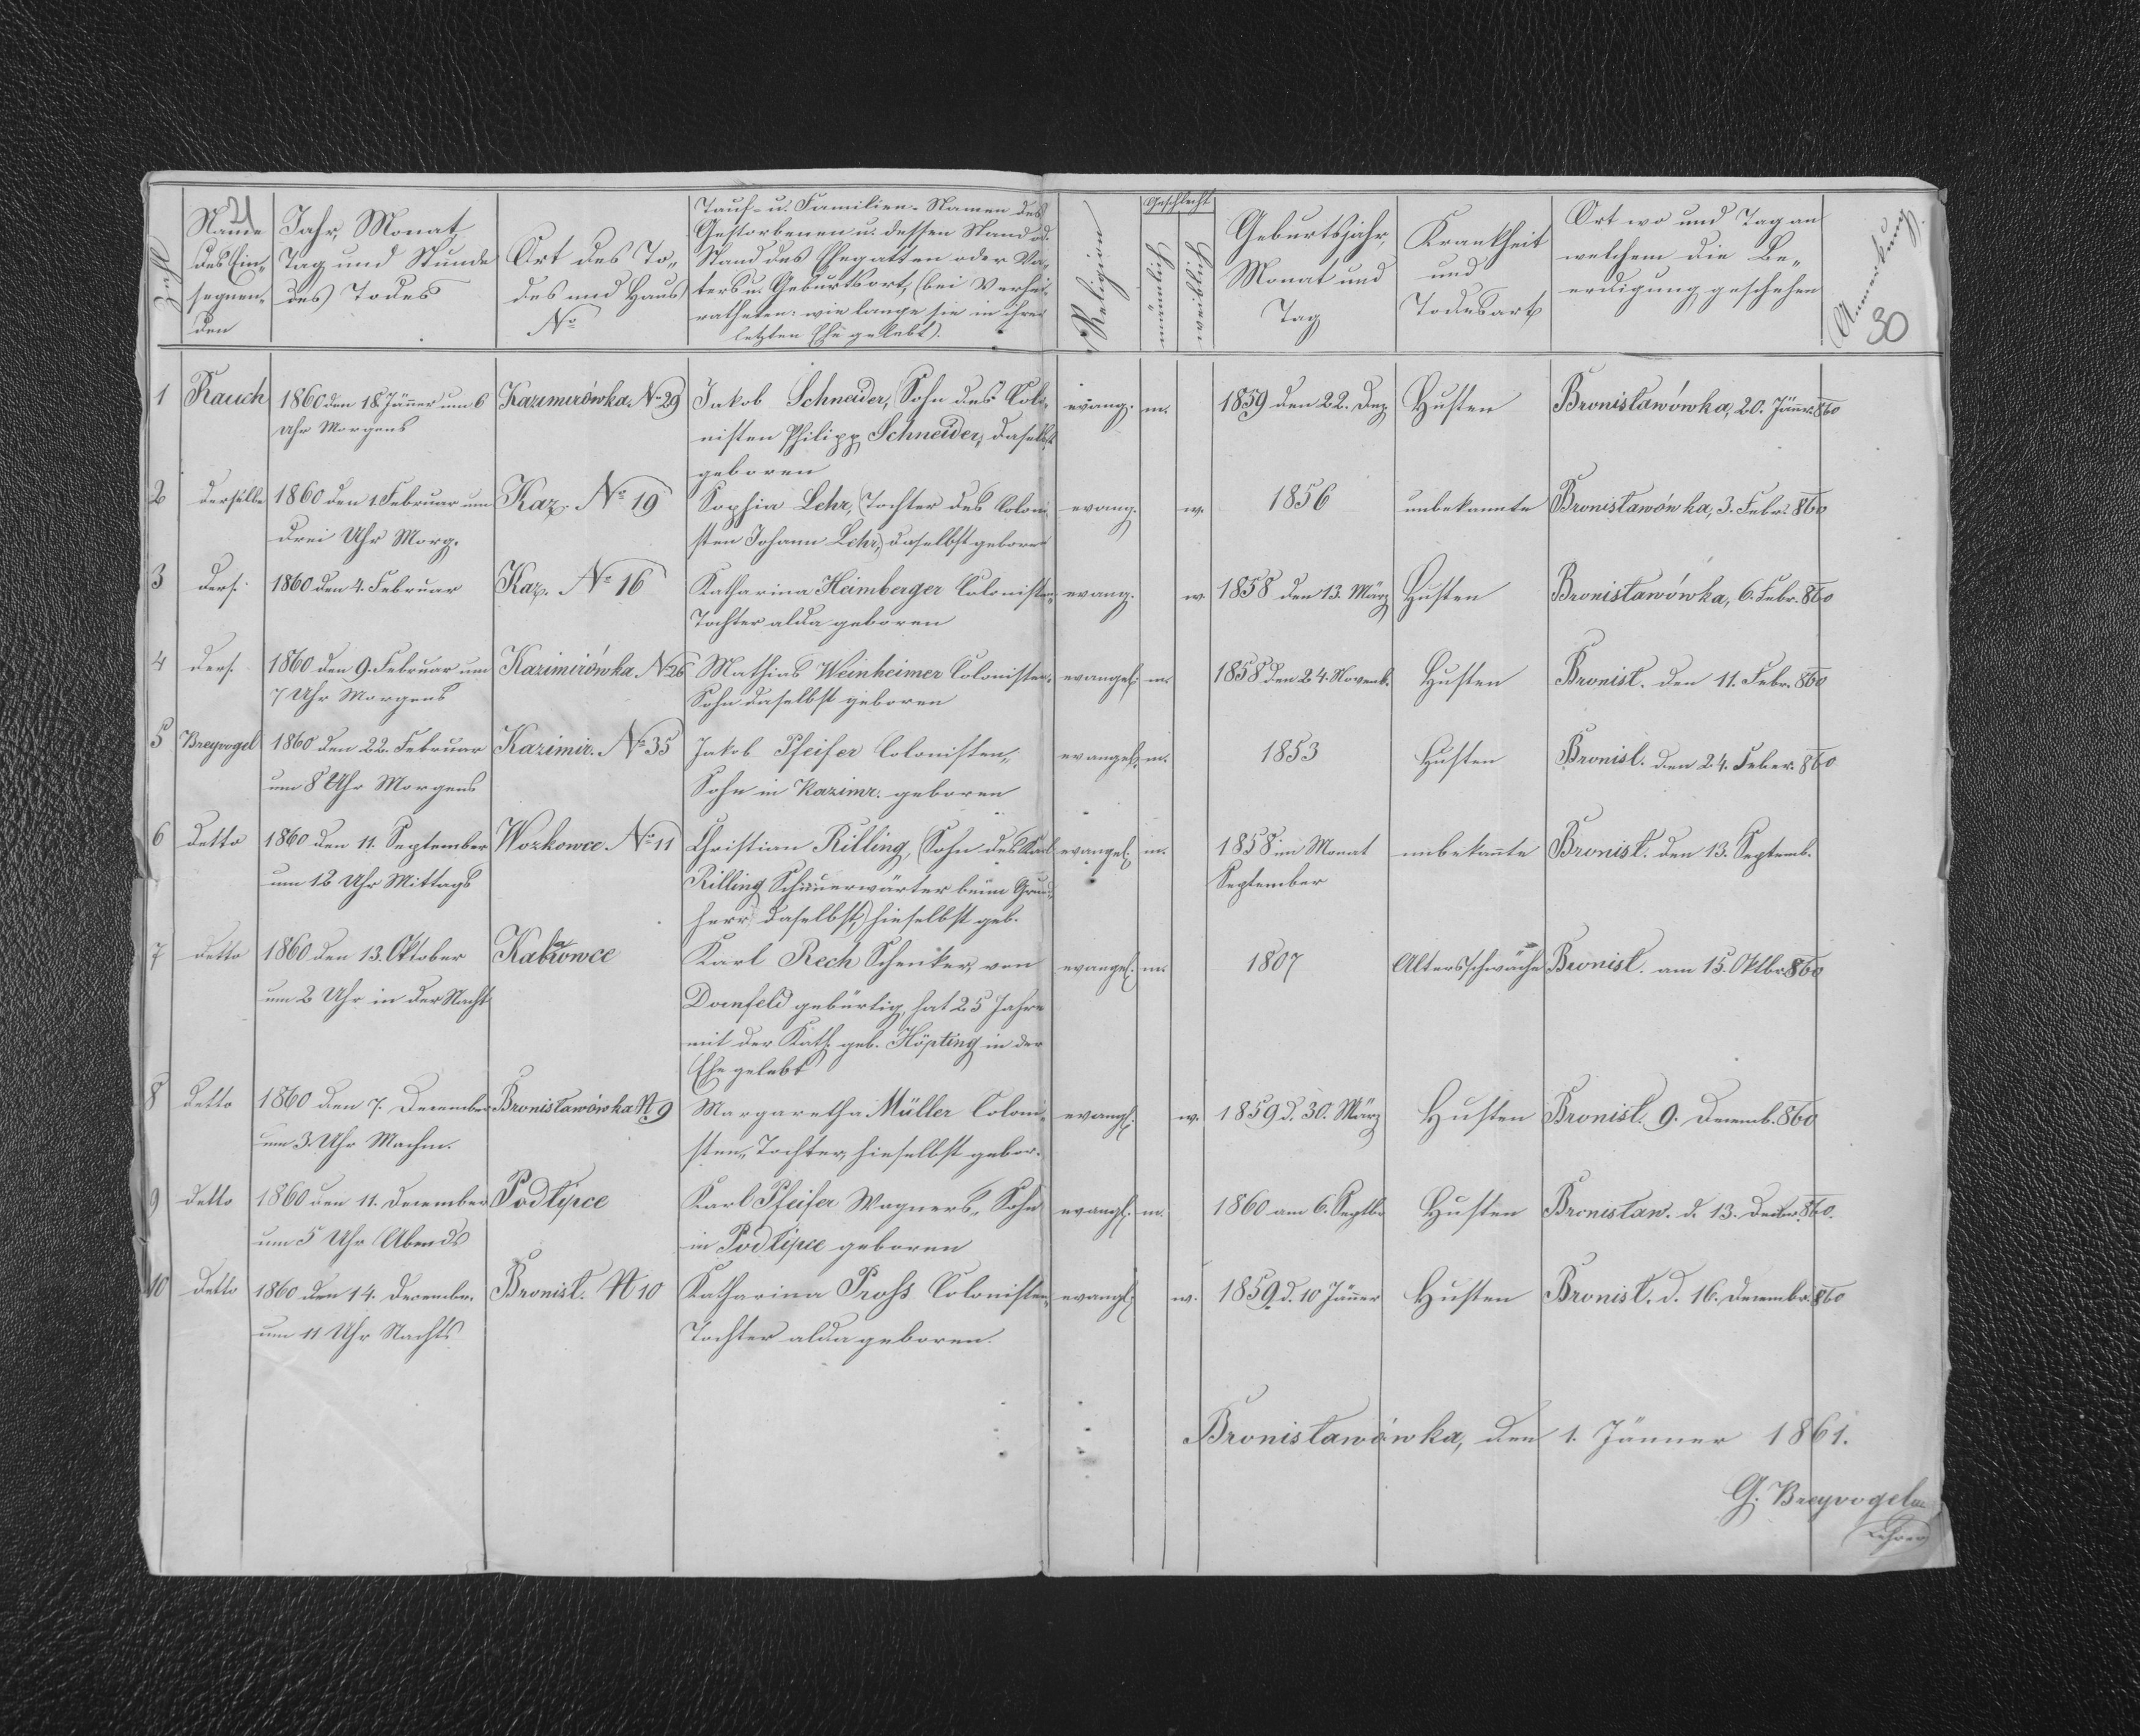 21
Name des Einsegnenden
Jahr, Monat, Tag und Stunde des Todes
Ort des Todes und Haus No
Tauf- u. Familien-Namen des
Gestorbenen u. dessen Stand od.
Stand des Ehegatten oder Va„
ters u. Geburtsort, (bei Verhei„
ratheten: wie lange sie in ihrer
letzten Ehe gelebt).
Religion
Geschlecht
männlich
weiblich
Geburtsjahr, Monat und Tag
Krankheit und Todesart
Ort wo und Tag an
welchem die Be„
erdigung geschehen
Anmerkung.
30
1 Rauch 1860 den 18. Jänner um 6 Kazimirówka. No 29 Jakob Schneider, (Sohn des Colo„ evang. m. 1859 den 22. Dez. Husten Bronisławówka, 20. Jänn. 860
Uhr Morgens nisten Philipp Schneider,) daselbst
geboren
2 derselbe 1860 den 1. Februar um Kaz. No 19 Sophia Lehr, (Tochter des Coloni„ evang. w. 1856 unbekannte Bronisławówka, 3. Febr. 860
drei Uhr Morg. sten Johann Lehr,) daselbst geboren
3 ders. 1860 den 4. Februar Kaz. No 16 Katharina Heimberger Colonisten„ evang. w. 1858 den 13. März Husten Bronisławówka, 6. Febr. 860
Tochter alda geboren
4 ders. 1860 den 9. Februar um Kazimirówka No 26 Mathias Weinheimer Colonisten„ evangel. m. 1858 den 24. Novemb. Husten Bronisl. den 11. Febr. 860
7 Uhr Morgens Sohn daselbst geboren
5 Breyvogel 1860 den 22. Februar Kazimir. No 35 Jakob Pfeifer Colonisten„ evangel. m. 1853 Husten Bronisl. den 24. Feber. 860
um 8 Uhr Morgens Sohn in Kazimr. geboren
6 detto 1860 den 11. September Wozkowce No 11 Christian Rilling, (Sohn des Karl evangel. m. 1858 im Monat unbekannte Bronisl. den 13. Septemb.
um 12 Uhr Mittags Rilling Scheuerwärter beim Grund„ September
herr daselbst,) hieselbst geb.
7 detto 1860 den 13. Oktober Karl Rech Schenker, von evangel. m. 1807 Altersschwäche Bronisl. am 15. Oktbr 860
um 2 Uhr in der Nacht Dornfeld gebürtig, hat 25 Jahre
mit der Kath. geb. Höpting in der
Ehe gelebt
8 detto 1860 den 7. December Bronisławówka N 9 Margaretha Müller Coloni„ evangl. w. 1859 d. 30. März Husten Bronisl. 9. Decemb. 860
um 3 Uhr Nachm. sten„ Tochter, hieselbst gebor.
9 detto 1860 den 11. December Podlipce Karl Pfeifer Wagners„ Sohn evangl. m. 1860 am 6. Septbr Husten Bronisław. d. 13. Decbr. 860.
um 5 Uhr Abends in Podlipce geboren
10 detto 1860 den 14. Decembr. Bronisl. N 10 Katharina Proß Colonisten„ evangl. w. 1859 d. 10 Jänner Husten Bronisl. d. 16. Decembr. 860
um 11 Uhr Nachts Tochter alda geboren.
Bronisławówka, den 1. Jänner 1861.
G. Breyvogel
Lehrer